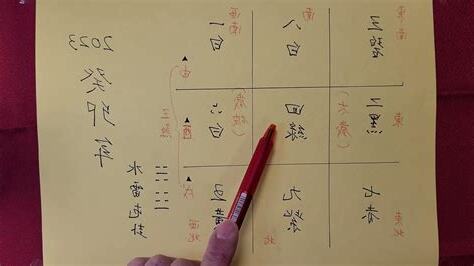 2023 癸卯年
水雷屯卦
東南
三碧
南
八白
西南
一白
申
東
(太歲)
二黑
四綠
(歲破)
六白
酉
三煞
東北
七赤
北
九紫
西北
五黃
戌